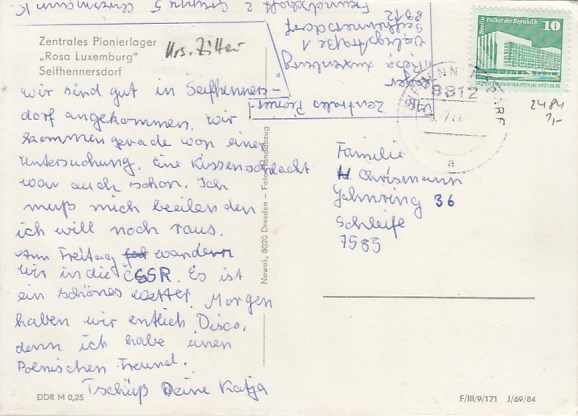 Zentrales Pionierlager
„Rosa Luxemburg"
Seifhennersdorf
Hrs. Zittau
wir sind gut in Seifhenners-
dorf angekommen. Wir
kommen gerade von einer
untersuchung. Eine Kissenschlacht
war auch schon. Ich
muß mich beeilen den
ich will noch raus.
Am Freitag wandern
wir in die ČSSR. Es ist
ein schönes wetter. Morgen
haben wir entlich Disco,
denn ich habe einen
Polnischen Freund.
Tschüß Deine Katja
DDR M 0,25
Zentrales Pionier
lager
"Rosa Luxemburg
Seifhennersdorf
8812
Freundschaft 2
Newok, 8020 Dresden – Foto: Handazug
Palast der Republik
10
DDR
8812
a
2484
7,-
Familie
Chrismann
Jahnring 36
Schleife
7585
F/III/9/171 J/69/84